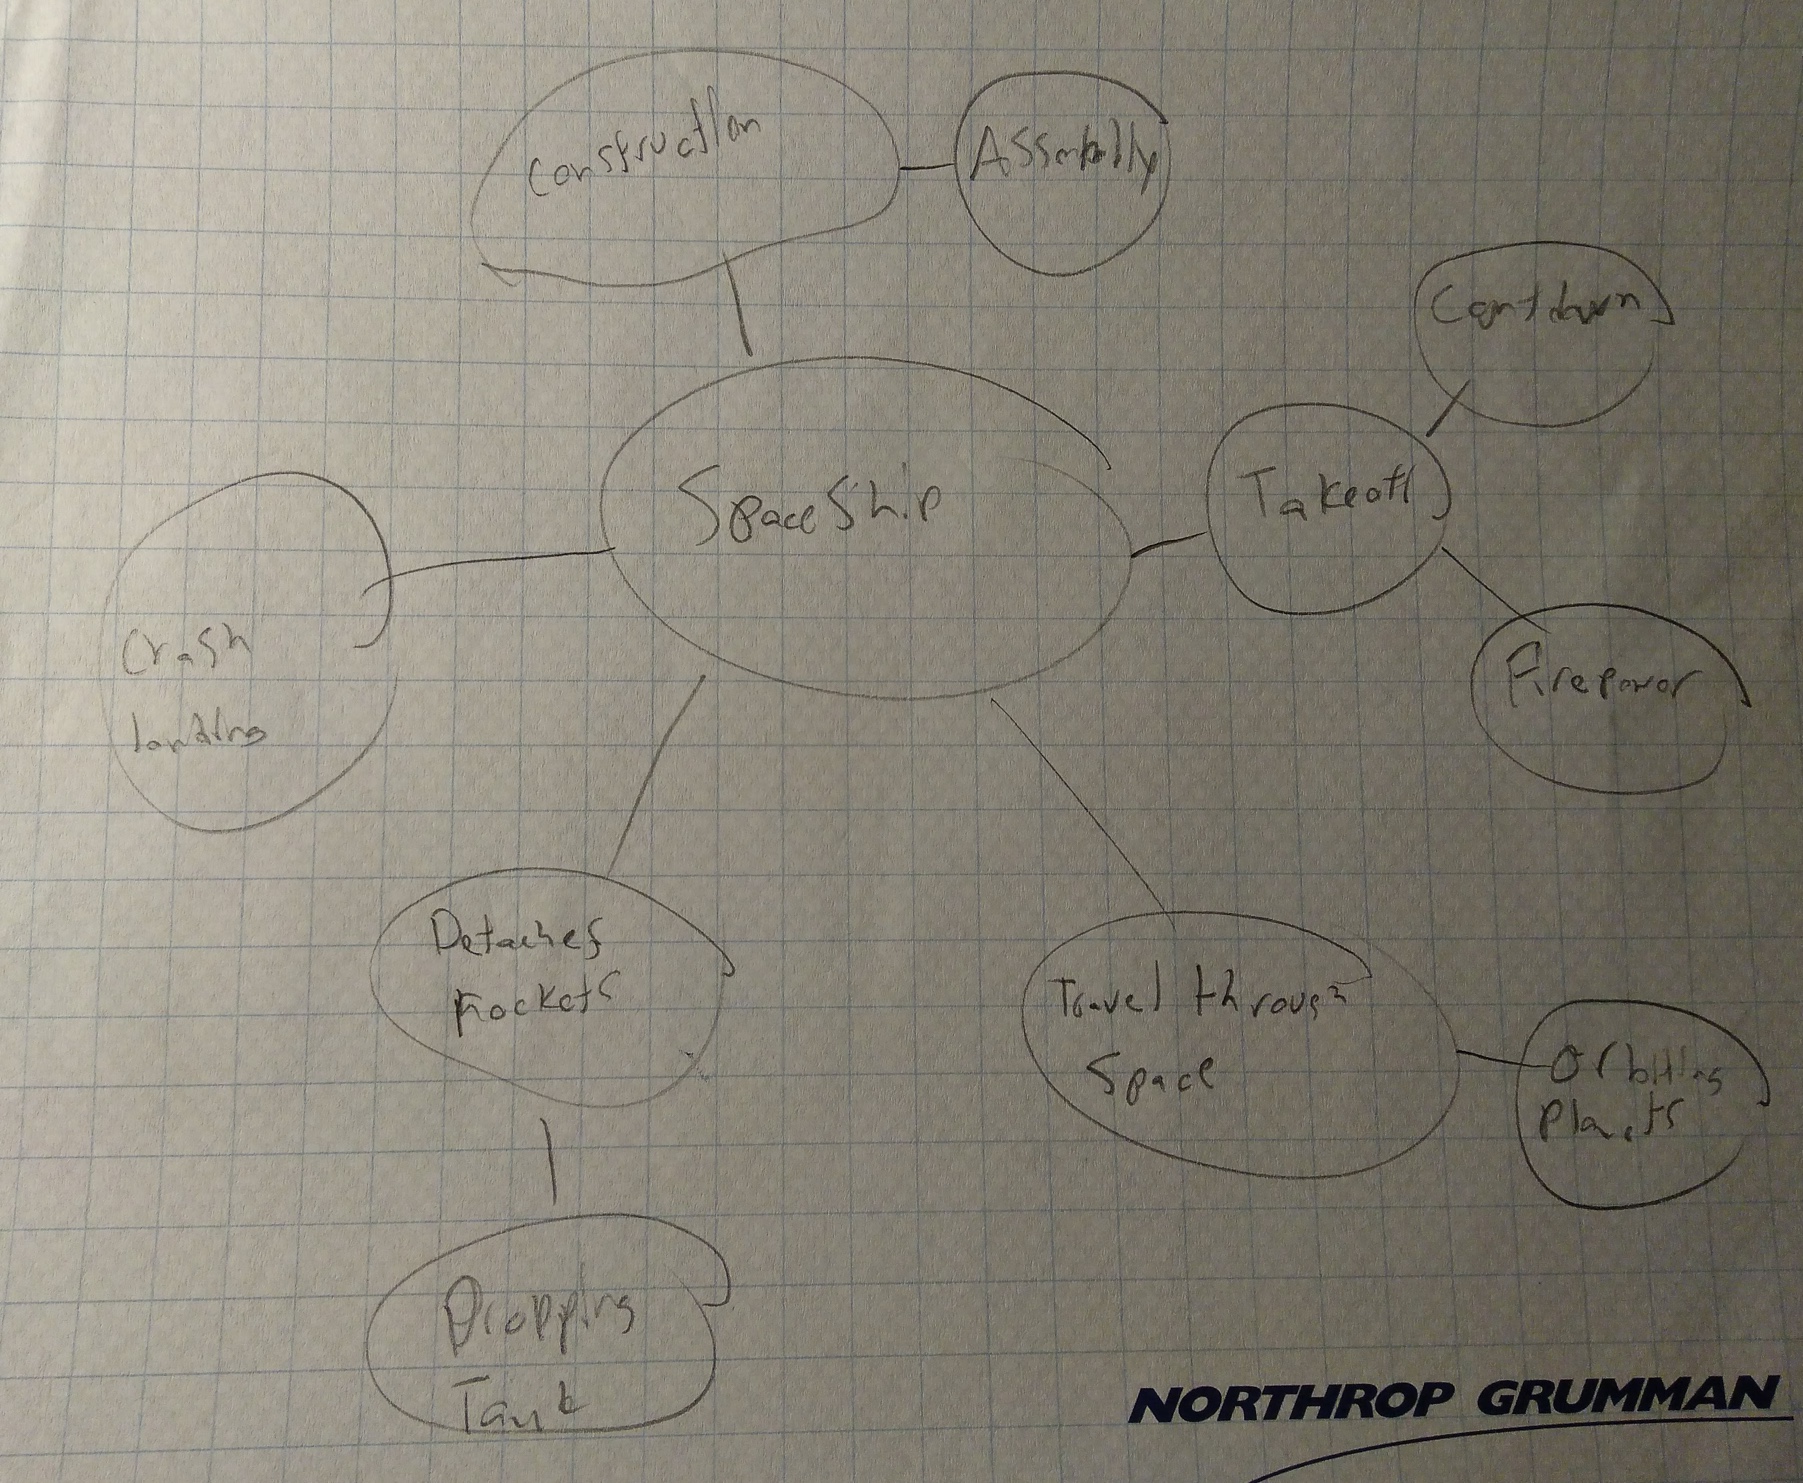 Construction
Assembly
Countdown
Spaceship
Takeoff
Crash
landing
Firepower
Detaches
Rockets
Travel through
Space
Orbiting
Planets
Dropping
Tank
NORTHROP GRUMMAN